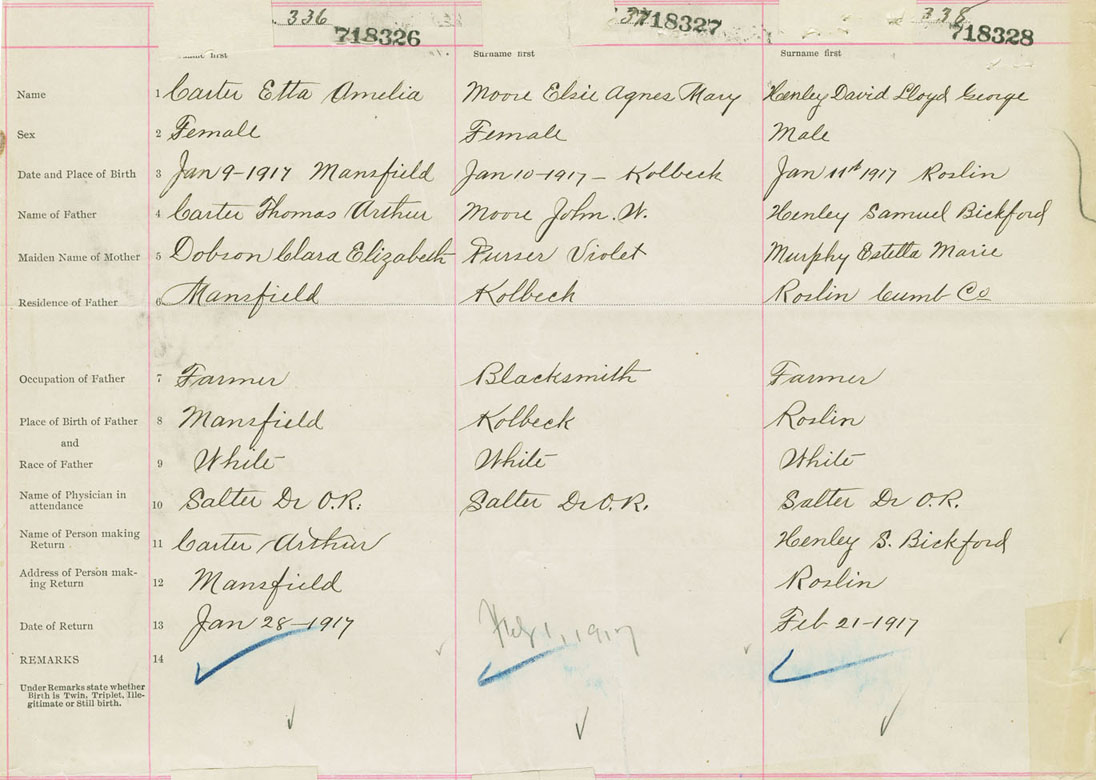 336 337 338
718326 718327 718328
first Surname first Surname first
Name 1 Carter Etta Amelia Moore Elsie Agnes Mary Henley David Lloyd George
Sex 2 Female Female Male
Date and Place of Birth 3 Jan 9-1917 Mansfield Jan 10-1917 - Kolbeck Jan 11th 1917 Roslin
Name of Father 4 Carter Thomas Arthur Moore John. W. Henley Samuel Bickford
Maiden Name of Mother 5 Dobson Clara Elizabeth Purser Violet Murphy Estella Marie
Residence of Father 6 Mansfield Kolbeck Roslin Cumb Co
Occupation of Father 7 Farmer Blacksmith Farmer
Place of Birth of Father 8 Mansfield Kolbeck Roslin
and
Race of Father 9 White White White
Name of Physician in
attendance 10 Salter Dr O.R. Salter Dr O.R. Salter Dr O.R.
Name of Person making
Return 11 Carter Arthur Henley S. Bickford
Address of Person mak-
ing Return 12 Mansfield Roslin
Date of Return 13 Jan 28-1917 1, 1917 Feb 21-1917
REMARKS 14
Under Remarks state whether
Birth is Twin, Triplet, Ille-
gitimate or Still birth.